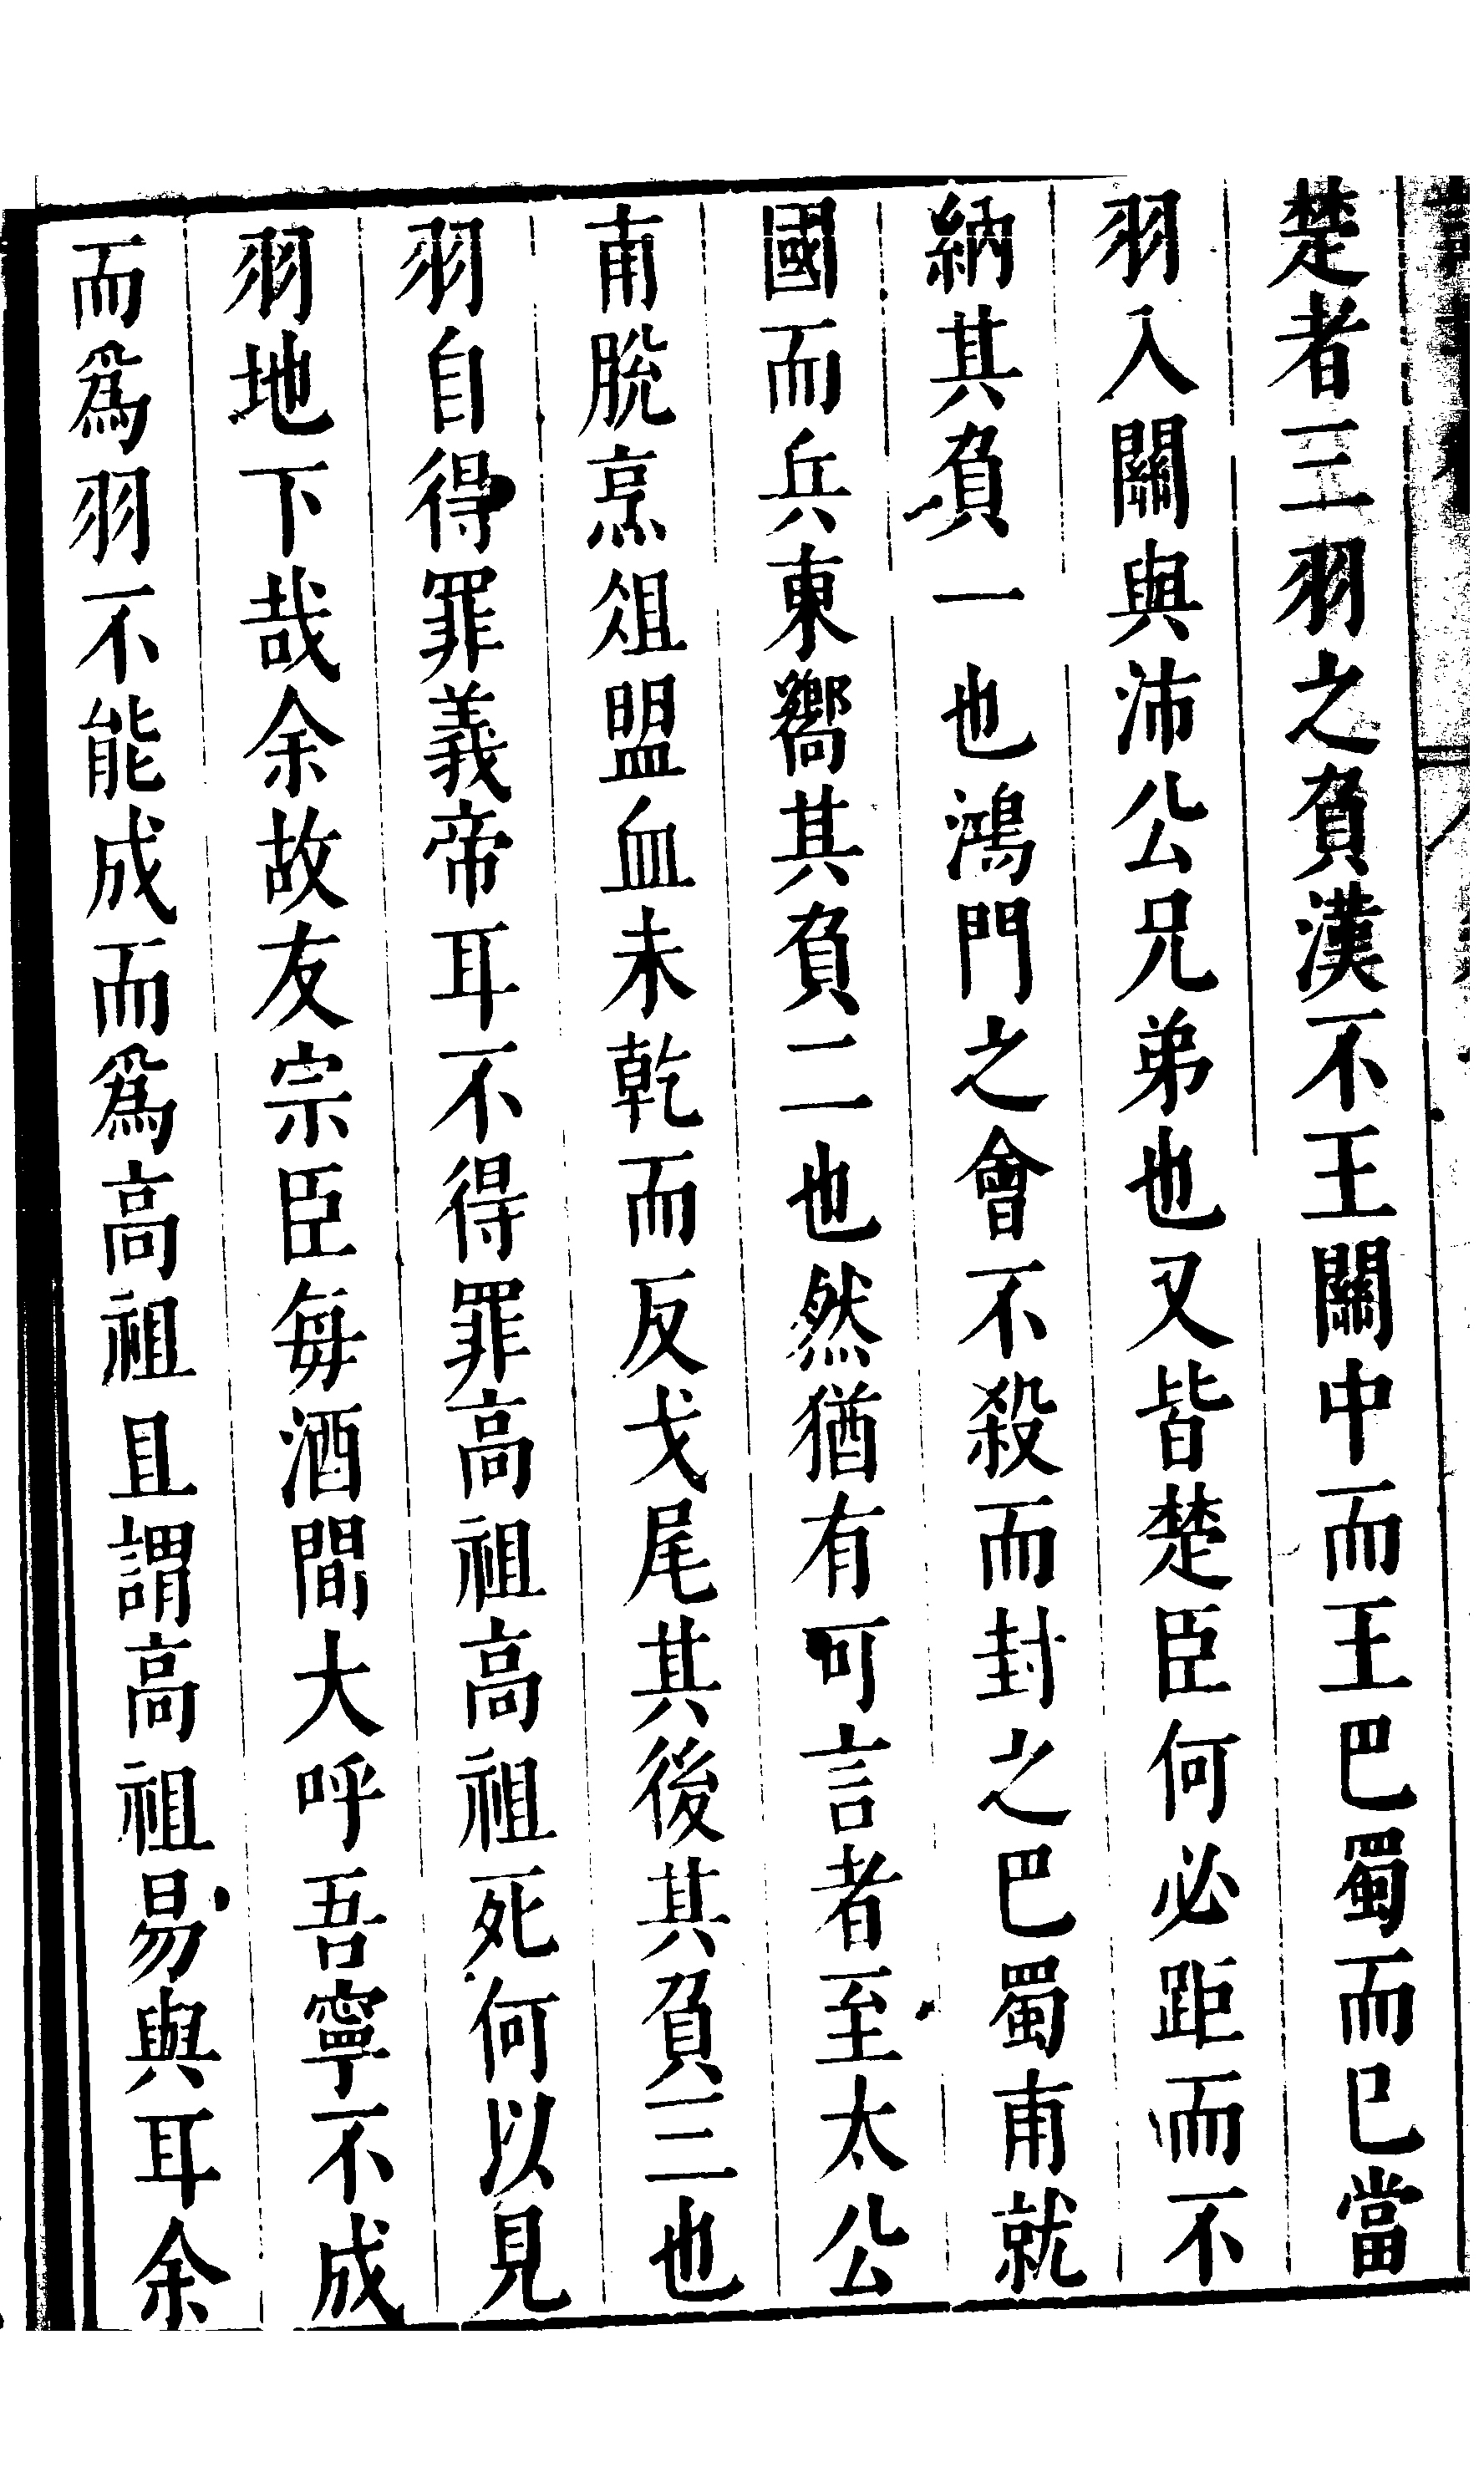 楚者三羽之負漢不王關中而王巴蜀而巳當
羽入關與沛公兄弟也又皆楚臣何必距而不
納其負一也鴻門之會不殺而封之巴蜀甫就
國而兵東嚮其負二也然猶有可言者至太公
甫脫烹俎盟血未乾而反戈尾其後其負三也
羽自得罪義帝耳不得罪高祖高祖死何以見
羽地下哉余故友宗臣每酒間大呼吾寧不成
而爲羽不能成而爲高祖且謂高祖易與耳余